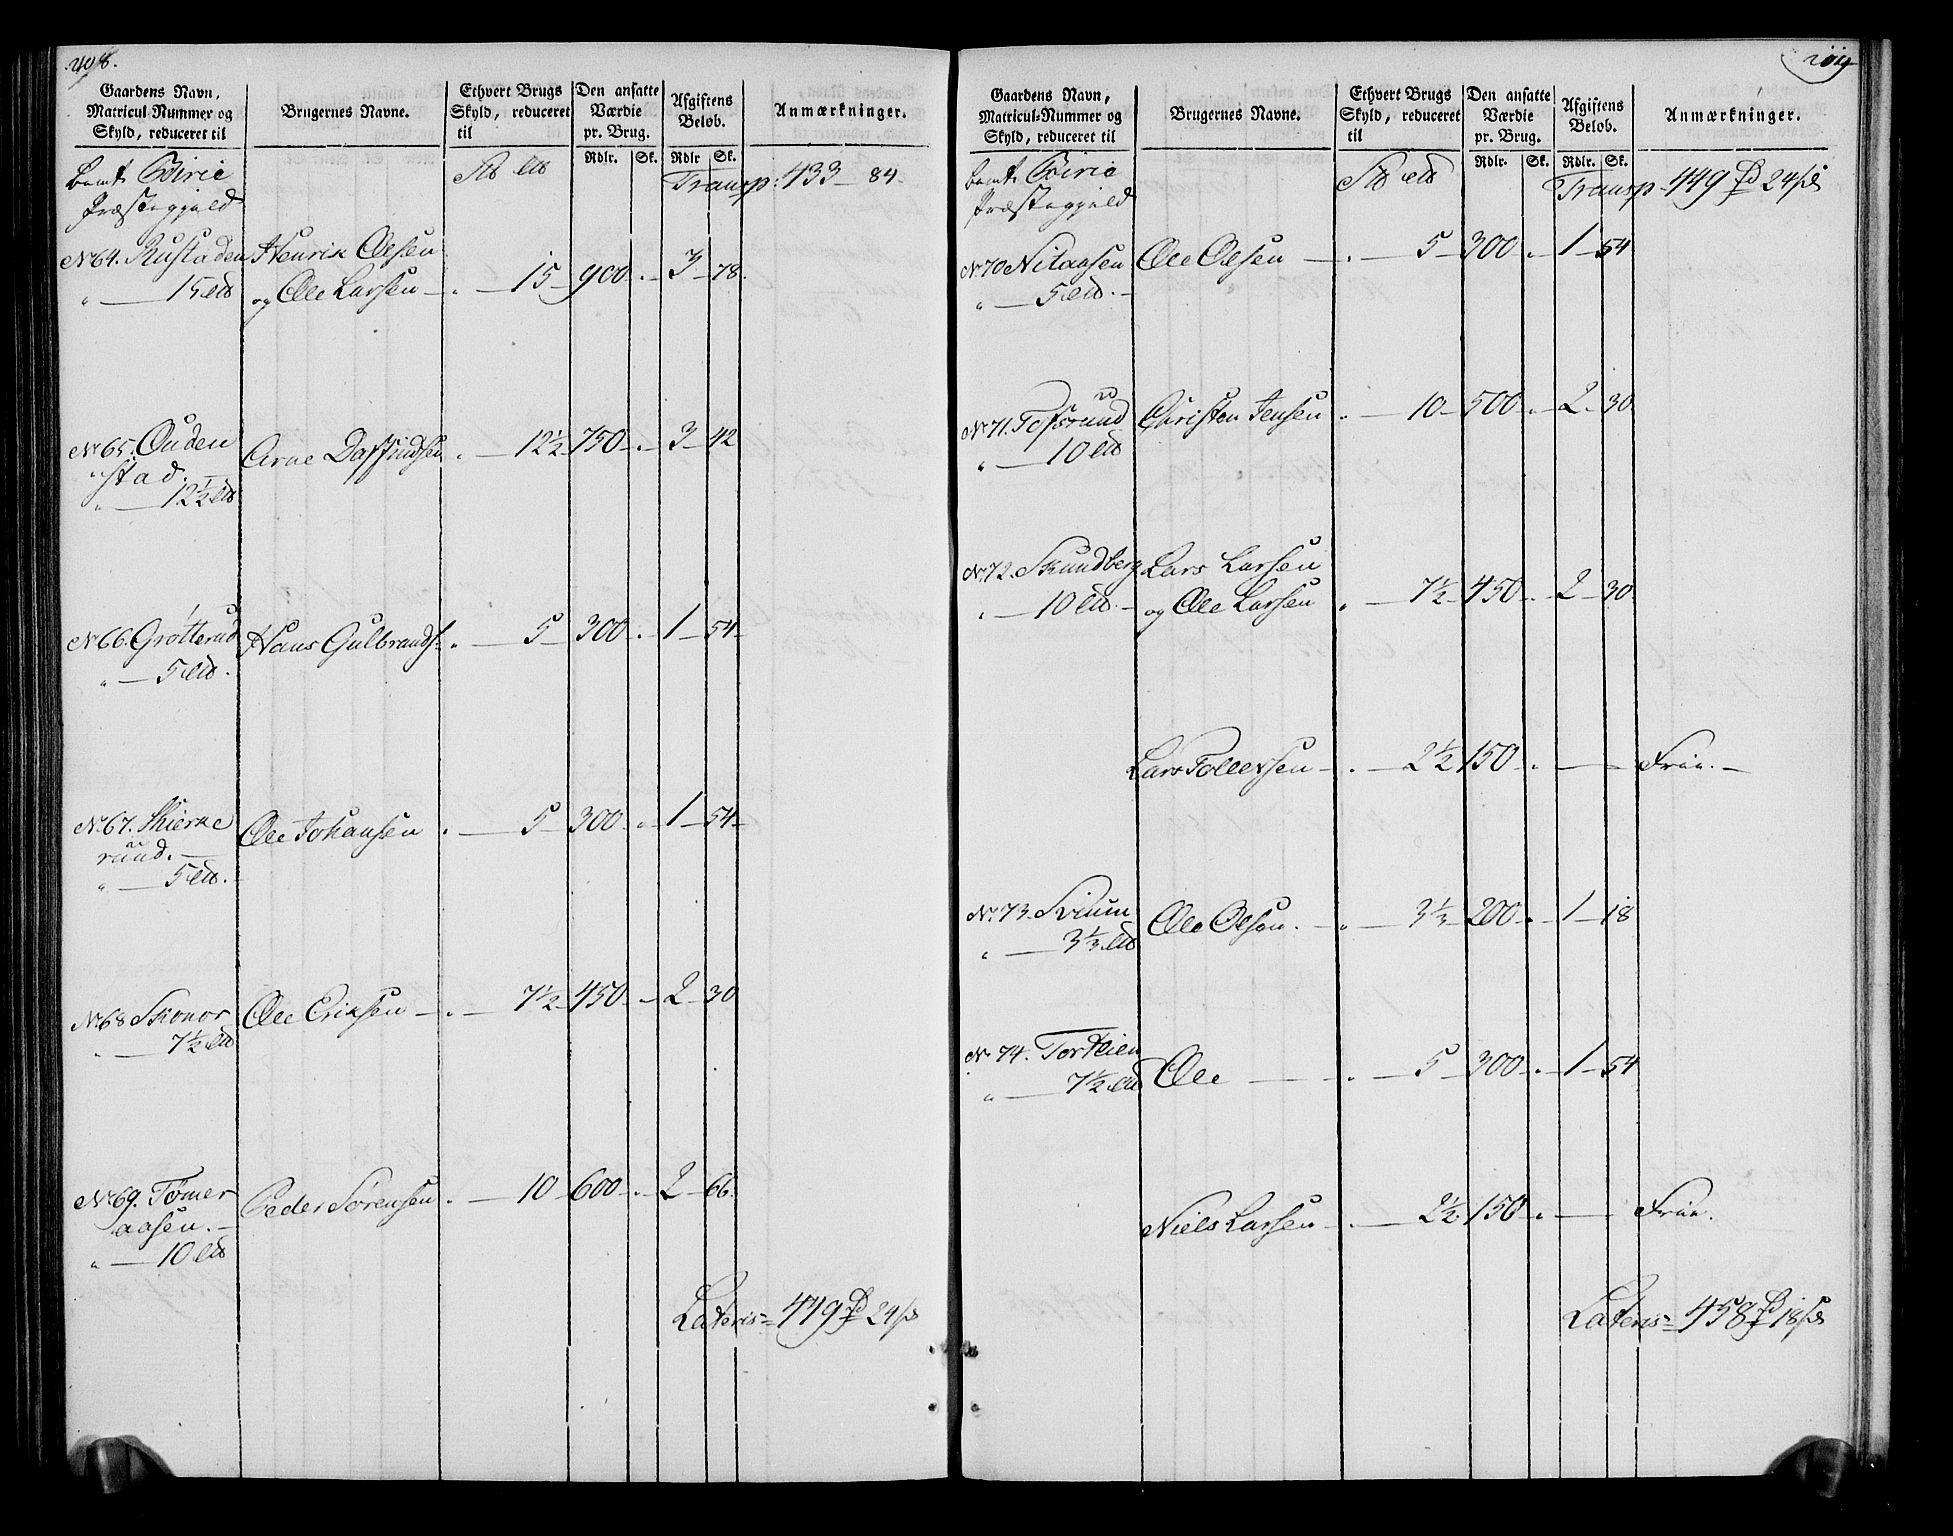 408.
Gaardens Navn, Matricul-Nummer og Skyld, reduceret til | Brugernes Navne. | Ethvert Brugs Skyld, reduceret til | Den ansatte Værdie pr. Brug. | Afgiftens Beløb. | Anmærkninger.
Rdlr. Sk. Rdlr Sk.
Biric Transp: 433 — 84
Præstegjeld
No 64. Rustaden Henrik Olsen
„ — 15 og Ole Larsen — „ — 15 — 900 „ — 3 — 78.
No 65. Ouden Arne Daffindsen „ — 12½ — 750 — „ — 3 — 42
stad.
„ — 12½
No 66. Grötterud Hans Gulbrands: „ — 5 — 300 „ — 1 — 54
„ — 5
No 67. Skierke Ole Johansen „ — 5 — 300 „ — 1 — 54
ruud.
„ — 5
No 68 Skonor Ole Eriksen — „ — 7½ — 450 — 2 — 30
„ — 7½
No 69. Tømer Peder Sørensen „ — 10 — 600 — „ — 2 — 66.
aasen.
„ — 10
Lateris = 449 24
Gaardens Navn, Matricul-Nummer og Skyld, reduceret til | Brugernes Navne. | Ethvert Brugs Skyld, reduceret til | Den ansatte Værdie pr. Brug. | Afgiftens Beløb. | Anmærkninger.
Rdlr. Sk. Rdlr. Sk.
Biric Transp. 449 24
Præstegjeld
No 70 Ole Olsen — „ — 5 — 300 „ — 1 — 54
„ — 5
No 71. Christen Jensen „ — 10 — 500 „ — 2 — 30
„ — 10
No 72. Skundberg Lars Larsen
„ — 10 og Ole Larsen „ — 7½ — 450 „ — 2 — 30
Lars Tollefsen — „ — 2½ 150 „ — Frie.
No 73. Svium Ole Olsen. — „ — 3⅓ 200 „ — 1 — 18
„ — 3⅓
No 74. Ole — „ — 5 — 300 „ — 1 — 54
„ — 7½
Niels Larsen — „ — 2½ 150 „ — Frie.
Lateris = 458 18